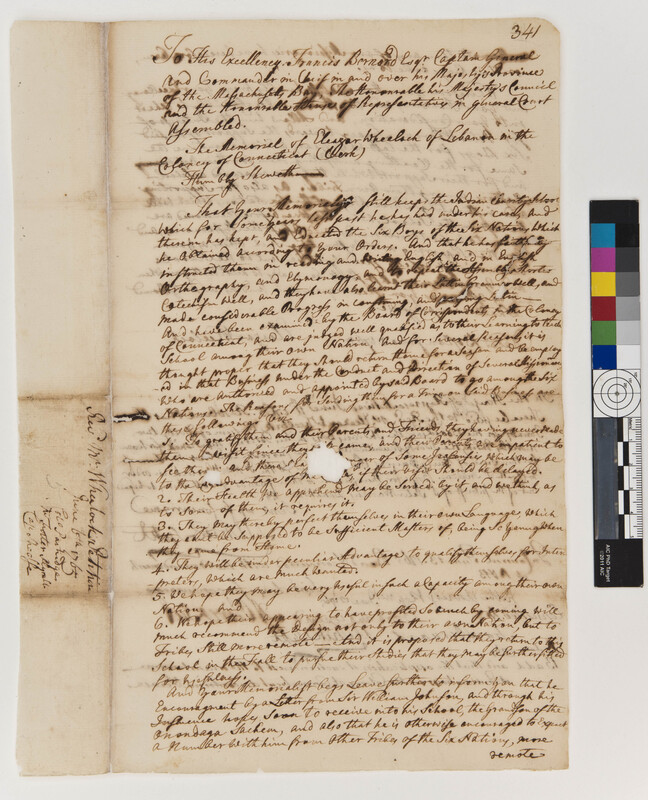 341
To His Excellency Francis Bernard Esqr. Captain General
and Commander in Chief in and over his Majesty's Province
of the Massachusetts Bay. The Honourable his Majesty's Council
and the Honourable House of Representatives in General Court
Assembled.
The Memorial of Eleazar Wheelock of Lebanon in the
Colony of Connecticut (Clerk)
Humbly Sheweth
That Your Memorialist still keeps the Indian Charity School
which for Some Years last past he has had under his care, and
therein has kept, and Educated the Six Boys of the Six Nations which
he Obtained according to Your Orders. And that he has faithfully
instructed them in reading and writing English, and in English
Orthography, and and the Shorter
Catechism well, and they have also learnt their Latin Grammar well, and
made considerable Progress in construing, and parsing Latin
And have been examined by the Board of Correspondents in the Colony
of Connecticut, and are judged well qualified as to their Learning to teach
School among their own Nation, and for Several Reasons, it is
thought proper that they Should return Home for a Season and be employ
ed in that Business under the Conduct and Direction of Several Missionaries
Who are Authorised and appointed by said Board to go among the Six
Nations. The Reasons for Sending them for a Time on said Business are
these following viz
1. To gratify them and their Parents and Friends, they having never made
them a visit since they came, and their Parents are impatient to
see them and of Some Jealousies which may be
to the disadvantage of if their visit Should be delayed.
2. Their Health we apprehend may be Served by it, and we think, as
to Some of them, it requires it.
3. They may thereby perfect themselves in their own Language, which
they can't be Supposed to be Sufficient Masters of, being So Young when
they came from Home.
4. They will be under peculiar Advantage to qualify themselves for Inter
preters, Which are much wanted.
5. We hope they may be very useful in such a Capacity among their own
Nation and
6. We hope their appearing to have profited So much by coming will
much recommend the Design not only to their own Nation, but to
Tribes Still more remote — And it is proposed that they return to this
School in the Fall to pursue their Studies that they may be further fitted
for Usefulness.
And Your Memorialist begs Leave further to inform You that he
Encouragement by a Letter from Sir William Johnson, and through his
Influence hopes Soon to receive into his School, the Grandson of the
Onondaga Sachem, and also that he is otherwise encouraged to Expect
a Number with him from Other Tribes of the Six Nations, more
remote
Revd. Mr. Wheelock's Petition
June 1765